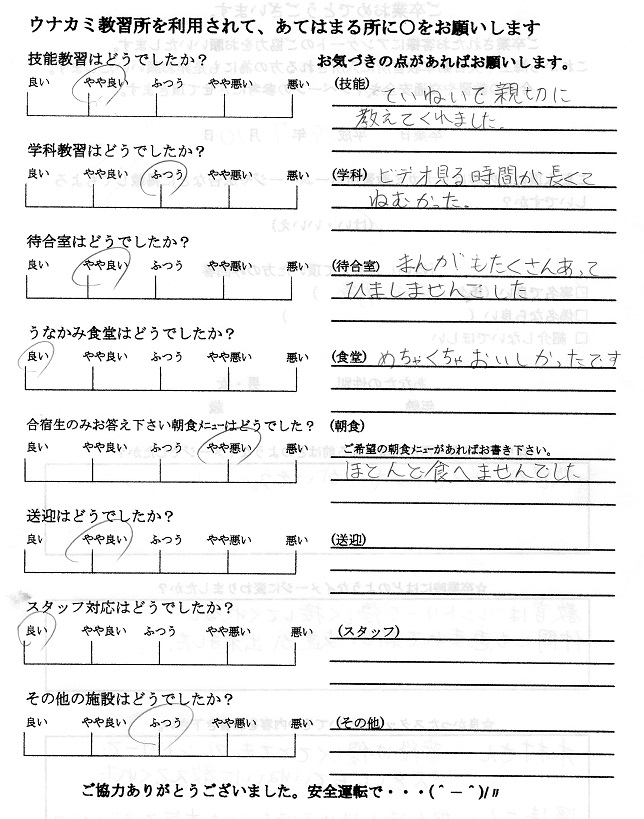 ウナカミ教習所を利用されて、あてはまる所に〇をお願いします
技能教習はどうでしたか？
お気づきの点があればお願いします。
良い やや良い ふつう やや悪い 悪い
(技能) ていねいで親切に
教えてくれました。
学科教習はどうでしたか？
良い やや良い ふつう やや悪い 悪い
(学科) ビデオ見る時間が長くて
ねむかった。
待合室はどうでしたか？
良い やや良い ふつう やや悪い 悪い
(待合室) まんがもたくさんあって
ひましませんでした
うなかみ食堂はどうでしたか？
良い やや良い ふつう やや悪い 悪い
(食堂) めちゃくちゃおいしかったです
合宿生のみお答え下さい朝食ﾒﾆｭｰはどうでした？
(朝食)
良い やや良い ふつう やや悪い 悪い
ご希望の朝食ﾒﾆｭｰがあればお書き下さい。
ほとんど食べませんでした
送迎はどうでしたか？
良い やや良い ふつう やや悪い 悪い
(送迎)
スタッフ対応はどうでしたか？
良い やや良い ふつう やや悪い 悪い
(スタッフ)
その他の施設はどうでしたか？
良い やや良い ふつう やや悪い 悪い
(その他)
ご協力ありがとうございました。安全運転で・・・(＾－＾)/〃